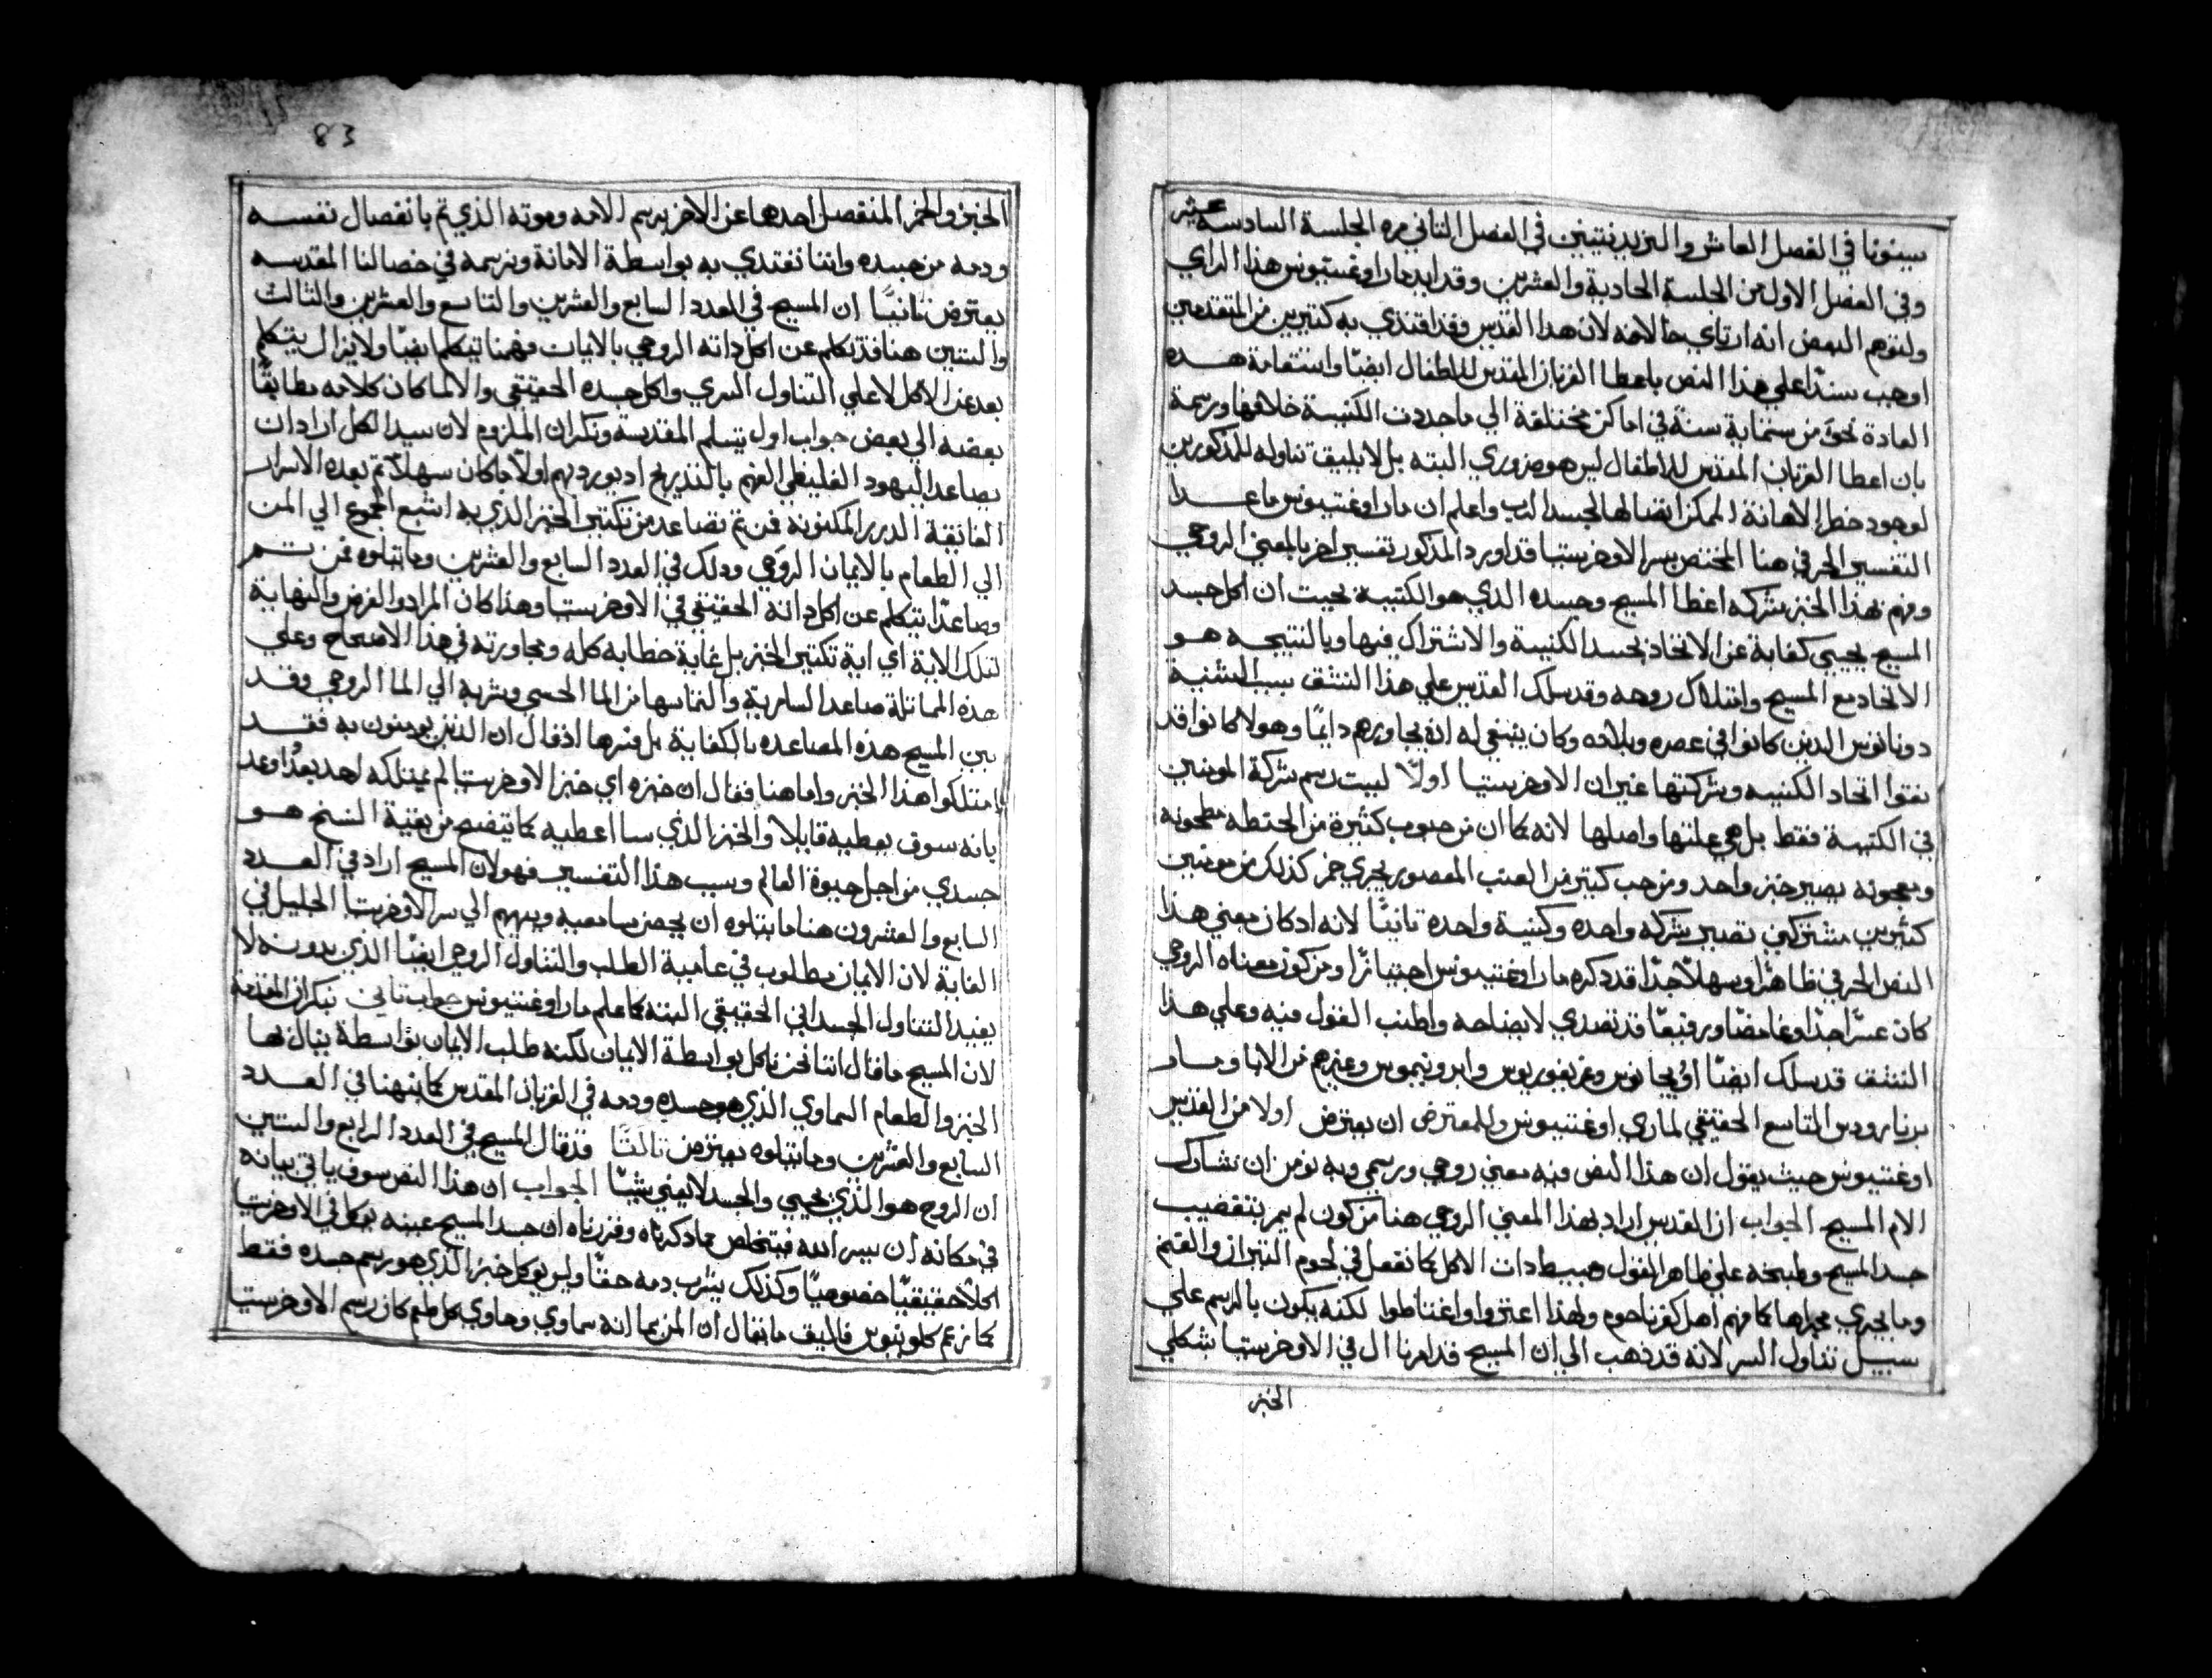 سينونا في الفصل العاشر والتريدنتيين في الفصل الثاني مره الجلسة السادسة عشر
وفي الفصل الاول من الجلسة الحادية والعشرين وقد ايد مار اوغستينوس هذا الراي
وليتوهم البعض انه ارتاي حالامه لان هدا القديس وقد اقتدي به كتيرين من المتقدمين
اوهب سندًا علي هذا النص باعطا القربان المقدس للاطفال ايضًا واستقامة هده
العادة نحوَ من ستماية سنة في اماكن مختلفة الي ما حددت الكنيسة خلافها ورسمة
بان اعطا القربان المقدس للاطفال ليس هو ضروري البته بل لا يليق تناوله للمذكورين
لوجود خطر الاهانة الممكن ايصالها لجسد الرب واعلم ان مار اوغستينوس ما عدا
التفسير الحرفي هنا المختص بسر الاوخرستيا قد اورد المذكور تفسير اخر بالمعني الروحي
وفهم بهذا الخبز شركه اعطا المسيح وجسده الذي هو الكنيسة بحيت ان اكل جسد
المسيح يجيي كناية عن الاتحاد بجسد الكنيسة والاشتراك فيها وبالنتيجه هو
الاتحاد مع المسيح وامتلاك روحه وقد سلك القديس علي هذا النسق بسبب المشنية
دوناتوس الدين كانوا في عصره وبلاده وكان ينبغي له انه يحاورهم دايمًا وهولا كانوا قد
نقوا اتحاد الكنيسه وشركتها غير ان الاوخرستيا اولًا ليست رسم شركة المومنين
في الكنيسة فقط بل هي علتها واصلها لانه كما ان من حبوب كثيرة من الحنطه مطحونه
ومعجونه يصير خبز واحد ومن حب كتير من العنب المعصور يجري خمر كذلك من مومنين
كثيرين مشتركين تصير شركه واحده وكنيسة واحده ثانيًا لانه ادكان معني هذا
النص الحرفي ظاهرًا وسهلًا جدًا قد دكره مار اوغستينوس اجتيازًا ومن كون معناه الروحي
كان عسرًا جدًا وغامضًا ورفيعًا قد تصدي لايضاحه واطنب القول فيه وعلي هذا
النسق قد سلك ايضًا اوريجانوس وغريغوريوس وايرونيموس وغيرهم من الابا ومار
برنارودس التابع الحقيقي لماري اوغستينوس وللمعترض ان يعترض اولا من القديس
اوغستينوس حيث يقول ان هذا النص فيه معني روحي ورسمي وبه نومن ان نشارك
الام المسيح الجواب ان القديس اراد بهذا المعني الروحي هنا من كون لم يمر بتقضيب
جسد المسيح وطبخه علي ظاهر القول وبسيط دات الاكل كما نفعل في لحوم التيران والغنم
وما يجري مجراها كما فهم اهل كفرناحوم ولهذا اعتزوا واغتاظوا لكنه يكون بالرسم علي
سبيل تناول السر لانه قد ذهب الي ان المسيح قد امرنا ال في الاوخرستيا بشكلي
الخبز
83
الخبز والخمر المنفصل احدهما عن الاخر برسم الامه وموته الذي تم بانفصال نفسه
ودمه من جسده واننا نقتدي به بواسطة الامانة ونرسمه في خصالنا المقدسه
يعترض ثانيًا ان المسيح في العدد السابع والعشرين والتاسع والعشرين والثالث
والستين هنا قد تكلم عن اكل داته الروحي بالايمان فهمنا يتكلم ايضًا ولا يزال يتكلم
بعد عن الاكل لا علي التناول السري واكل جسده الحقيقي والا لما كان كلامه مطابقًا
بعضه الي بعض جواب اول بتسلم المقدسة ونكران الملزوم لان سيد الكل اراد ان
يصاعد اليهود الغليظي الفهم بالتدريج اد يورد لهم اولًا ما كان سهلًا ثم بعده الاسرار
الفائقة الدرر المكنونه فمن ثم تصاعد من تكتير الخبز الذي به اشبع الجموع الي المن
الي الطعام بالايمان الروحي ودلك في العدد السابع والعشرين وما يتلوه فمن تم
وصاعدًا يتكلم عن اكل داته الحقيقي في الاوخرستيا وهذا كان المراد والغرض والنهاية
لتلك الاية اي اية تكتير الخبز بل غاية خطابه كله ومحاورته في هذا الاصحاح وعلي
هذه المماثلة صاعد السامرية والتماسها من الما الحسي وشربه الي الما الروحي وقد
بين المسيح هذه المصاعده بالكفاية بل فسرها اذ قال ان الذين يومنون به فقد
امتلكوا هذا الخبز واما هنا فقال ان خبزه اي خبز الاوخرستيا لم يمتلكه احد بعدُ اوعد
بانه سوف يعطيه قايلًا والخبز الذي سا اعطيه كما يتضح من بقية النسخ هو
جسدي من اجل حيوة العالم وسبب هذا التفسير فهو لان المسيح اراد في العدد
السابع والعشرون هنا ما يتلوه ان يحضر سامعيه ويهيهم الي سر الاوخرستيا الجليل في
الغاية لان الايمان مطلوب في عامية الطلب والتناول الروحي ايضًا الذي بدونه لا
يفيد التناول الجسداني الحقيقي البته كما علم مار اوغستينوس جواب تاني بنكران المقدمة
لان المسيح ما قال اننا نحن ناكل بواسطة الايمان لكنه طلب الايمان بواسطة ينال بها
الخبز والطعام السماوي الذي هو جسده ودمه في القربان المقدس كما نبهنا في العدد
السابع والعشرين وما يتلوه يعترض ثالثًا قد قال المسيح في العدد الرابع والستين
ان الروح هو الذي يحيي والجسد لا يغني شيًا الجواب ان هذا النص سوف ياتي بيانه
في مكانه ان يسر الله فيتخلص مما دكرناه وقررناه ان جسد المسيح عينه يوكل في الاوخرستيا
اكلًا حقيقيًا خصوصيًا وكذلك يشرب دمه حقًا وليس يوكل خبز الذي هو رسم جسده فقط
كما زعم كلوينوس فاليق ما يقال ان المن بما انه سماوي وحاوي كل طعم كان رسم الاوخرستيا